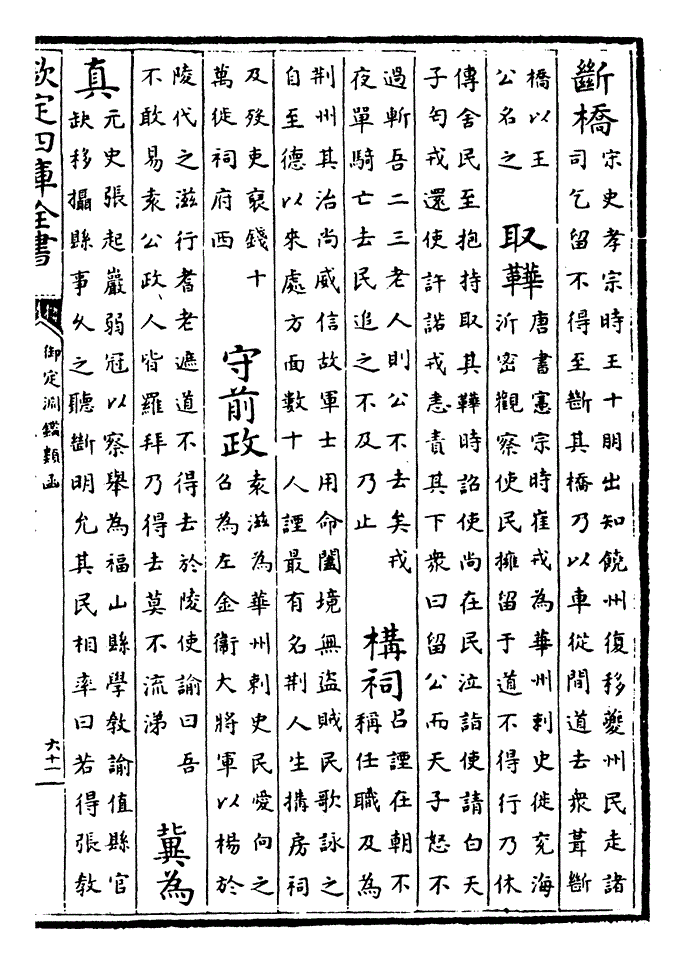 斷橋
宋史孝宗時王十朋出知饒州復移夔州民走諸
司乞留不得至斷其橋乃以車從間道去衆葺斷
橋以王
公名之
取鞾
唐書憲宗時崔戎為華州刺史徙兖海
沂密觀察使民擁留于道不得行乃休
傳舍民至抱持取其鞾時詔使尚在民泣詣使請白天
子句戎還使許諾戎恚責其下衆曰留公而天子怒不
過斬吾二三老人則公不去矣戎
夜單騎亡去民追之不及乃止
構祠
吕諲在朝不
稱任職及為
荆州其治尚威信故軍士用命闔境無盗賊民歌詠之
自至德以來處方面數十人諲最有名荆人生搆房祠
及殁吏裒錢十
萬徙祠府西
守前政
袁滋為華州刺史民愛向之
召為左金衛大將軍以楊於
陵代之滋行耆老遮道不得去於陵使諭曰吾
不敢易袁公政人皆羅拜乃得去莫不流涕
冀為
真
元史張起巖弱冠以察舉為福山縣學教諭值縣官
缺移攝縣事久之聽斷明允其民相率曰若得張教
欽定四庫全書
御定淵鑑類函
六十一